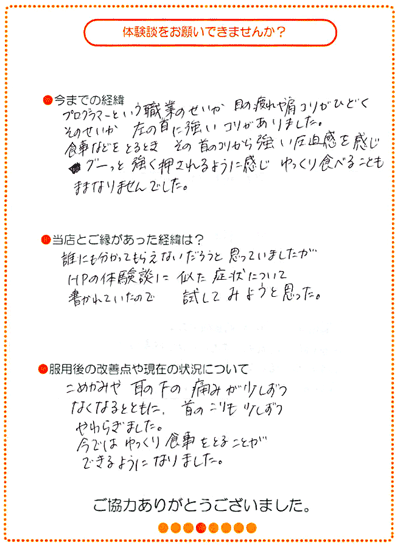 体験談をお願いできませんか？
●今までの経緯
プログラマーという職業のせいか 目の疲れや肩コリがひどく
そのせいか 左の首に強い コリがありました。
食事などをとるとき その首のコリから強い圧迫感を感じ
グーっと 強く押されるように感じ ゆっくり食べることも
ままなりませんでした。
●当店とご縁があった経緯は？
誰にも分かってもらえないだろうと思っていましたが
HPの体験談に 似た症状について
書かれていたので 試してみようと思った。
●服用後の改善点や現在の状況について
こめかみや 耳の下の 痛みが少しずつ
なくなるとともに、首のこりも 少しずつ
やわらぎました。
今では ゆっくり 食事をとることが
できるようになりました。
ご協力ありがとうございました。